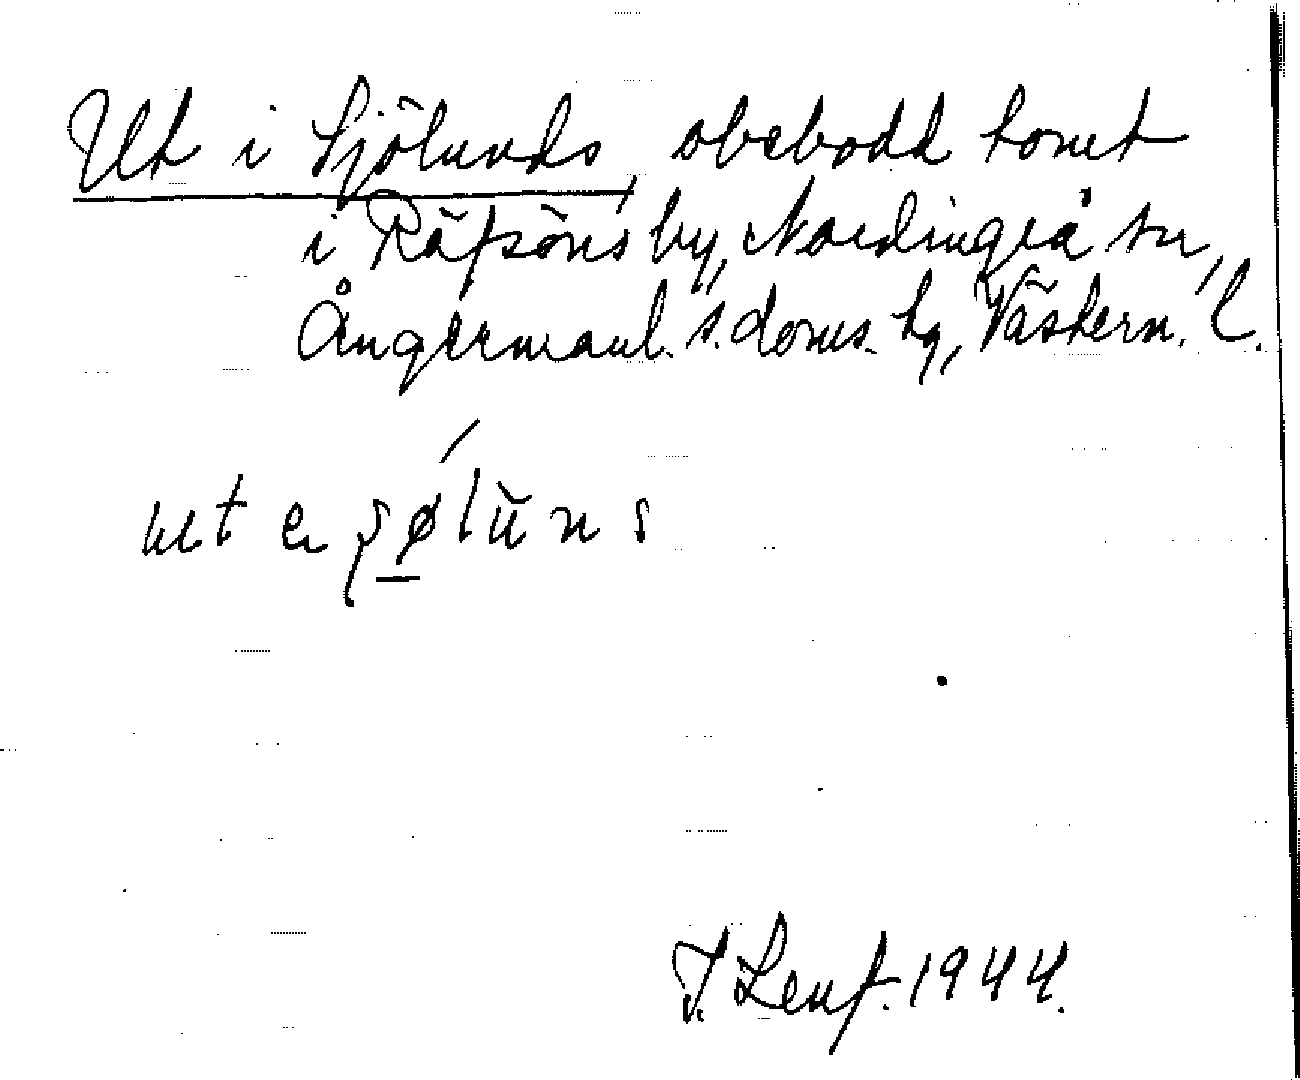 Ut i Sjölunds, obebodd tomt
i Räfsöns by, Nordingrå sn,
Ångermanl. s. doms. hg, Västern. l.
ut e sølŭns
J. Lenf. 1944.